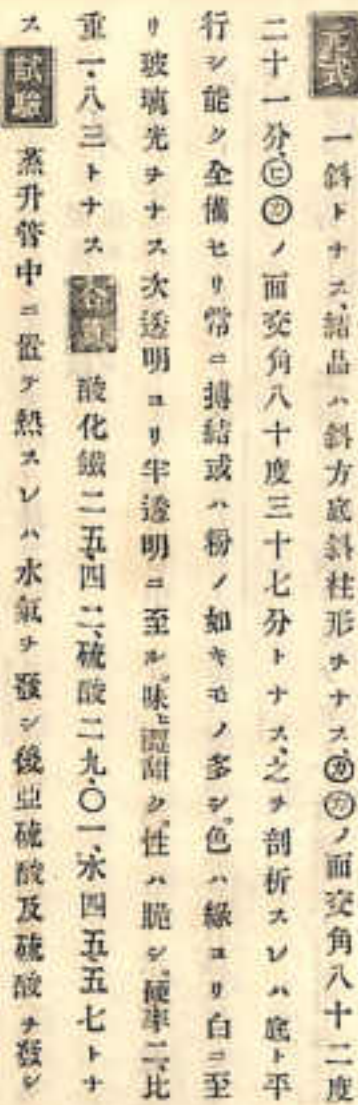 元式 一斜トナス、結晶ハ斜方底斜柱形ヲナス、㋕㋕ノ面交角八十二度
二十一分、㋪㋕ノ面交角八十度三十七分トナス、之ヲ剖析スレハ底ト平
行シ能ク全備セリ常ニ摶結或ハ粉ノ如キモノ多シ、色ハ綠ヨリ白ニ至
リ玻璃光ヲナス次透明ヨリ半透明ニ至ル、味ヒ澀甜ク、性ハ脆シ、硬率二、比
重一、八三トナス 合質 酸化鐵二五、四二、硫酸二九、〇一、水四五、五七トナ
ス 試驗 蒸升管中ニ置テ熱スレハ水氣ヲ發シ後亞硫酸及硫酸ヲ發シ